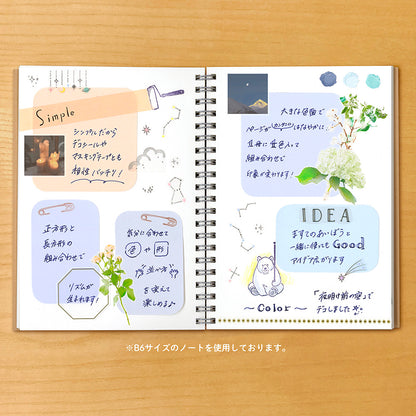 Simple
シンプルだから
デコシールや
マスキングテープとも
相性バッチリ!
正方形と
長方形の
組み合わせで
リズムが
生まれます!
気分に合わせて
色や形
"並べ方"
を変えて
楽しめる♪
大きな色面で
ページがカンタンにはなやかに
台紙に重ね入れて
組み合わせて
印象が変わります!
IDEA
ますてのあいぼうと
一緒に使っても Good
アイデア広がります
〜Color〜
「夜明け前の空」で
デコしました
※B6サイズのノートを使用しております。